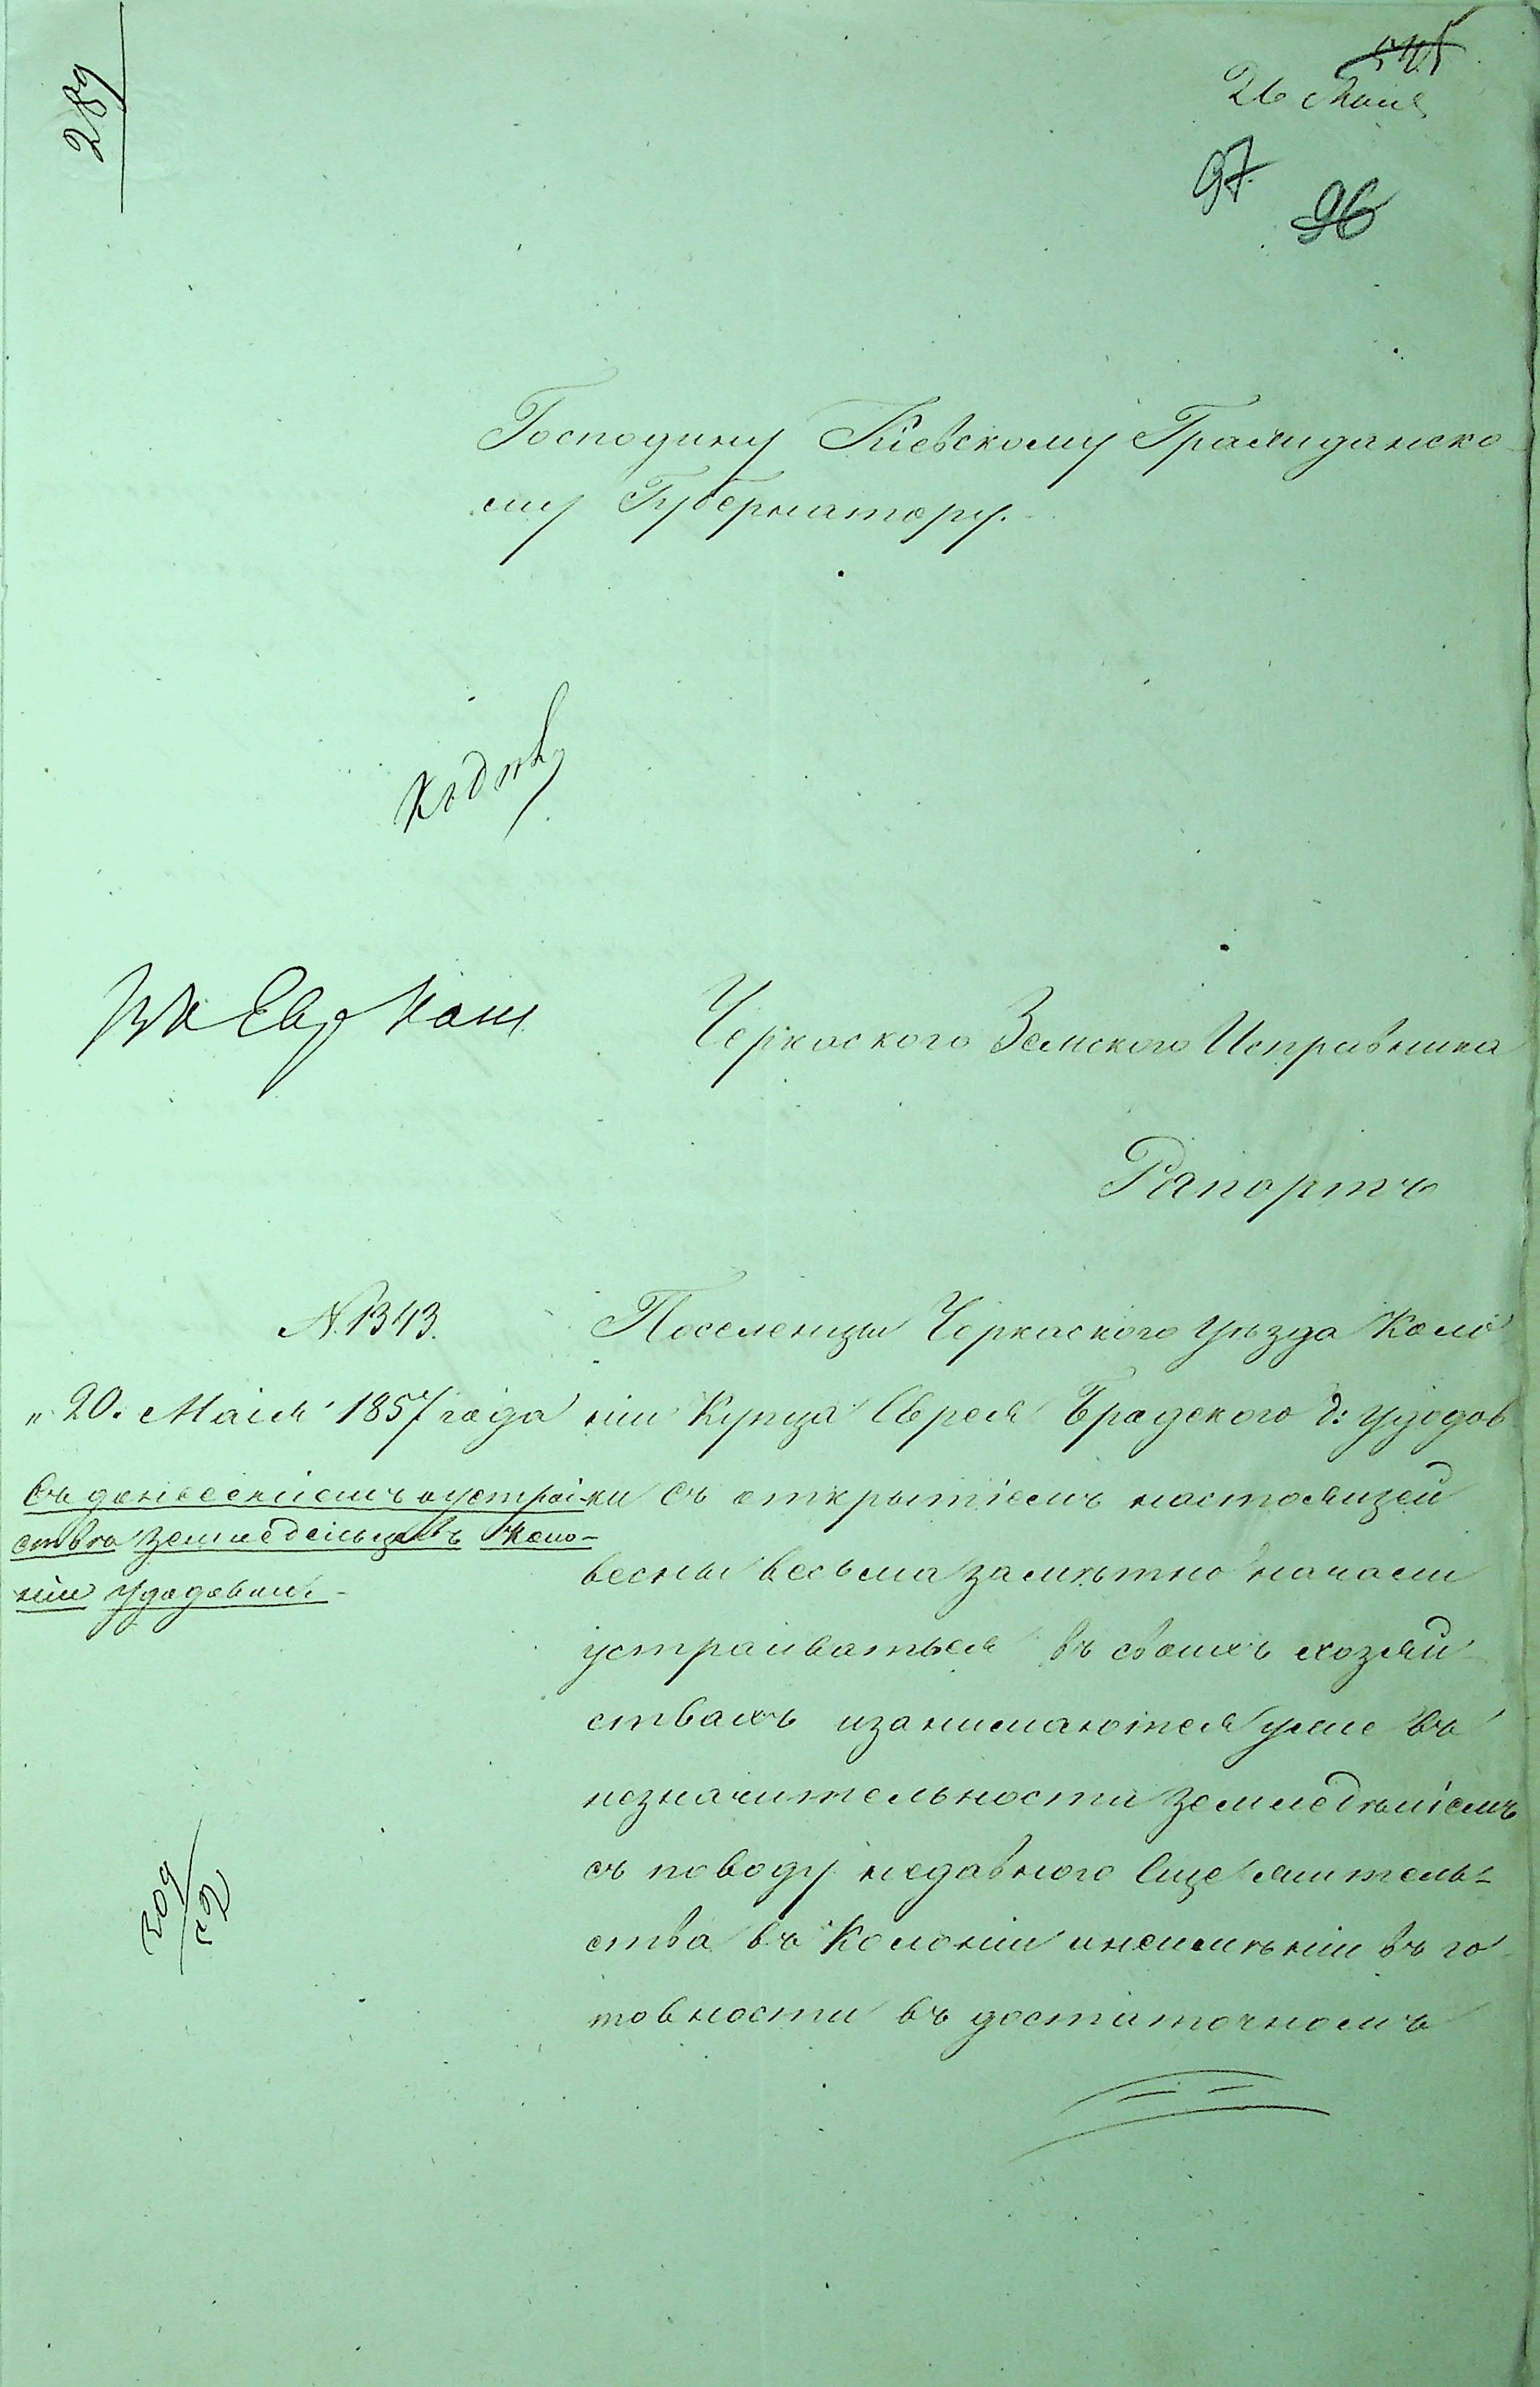 289
545
26 Мая
97
96
Господину Кіевскому Гражданско
му Губернатору.
Къ дѣлу
Черкаского Земского Исправника
Рапортъ
N. 1343.
„20. Маія 1857 года
Съ донесеніемъ о устрой-
ства земледельцовъ Коло-
ніи Удодовки
309
52
Поселенцы Черкаского уѣзда Коло
ніи Купца Еврея Бродского д: Удодов
ки съ открытіемъ настоящей
весны весьма замѣтно начали
устраиваться въ своихъ хозяй
ствахъ изанимаются уже въ
незначительности Земледѣліемъ
съ поводу недавного Еще жытель-
ства въ Колоніи инеимѣніи въ го
товности въ достаточномъ